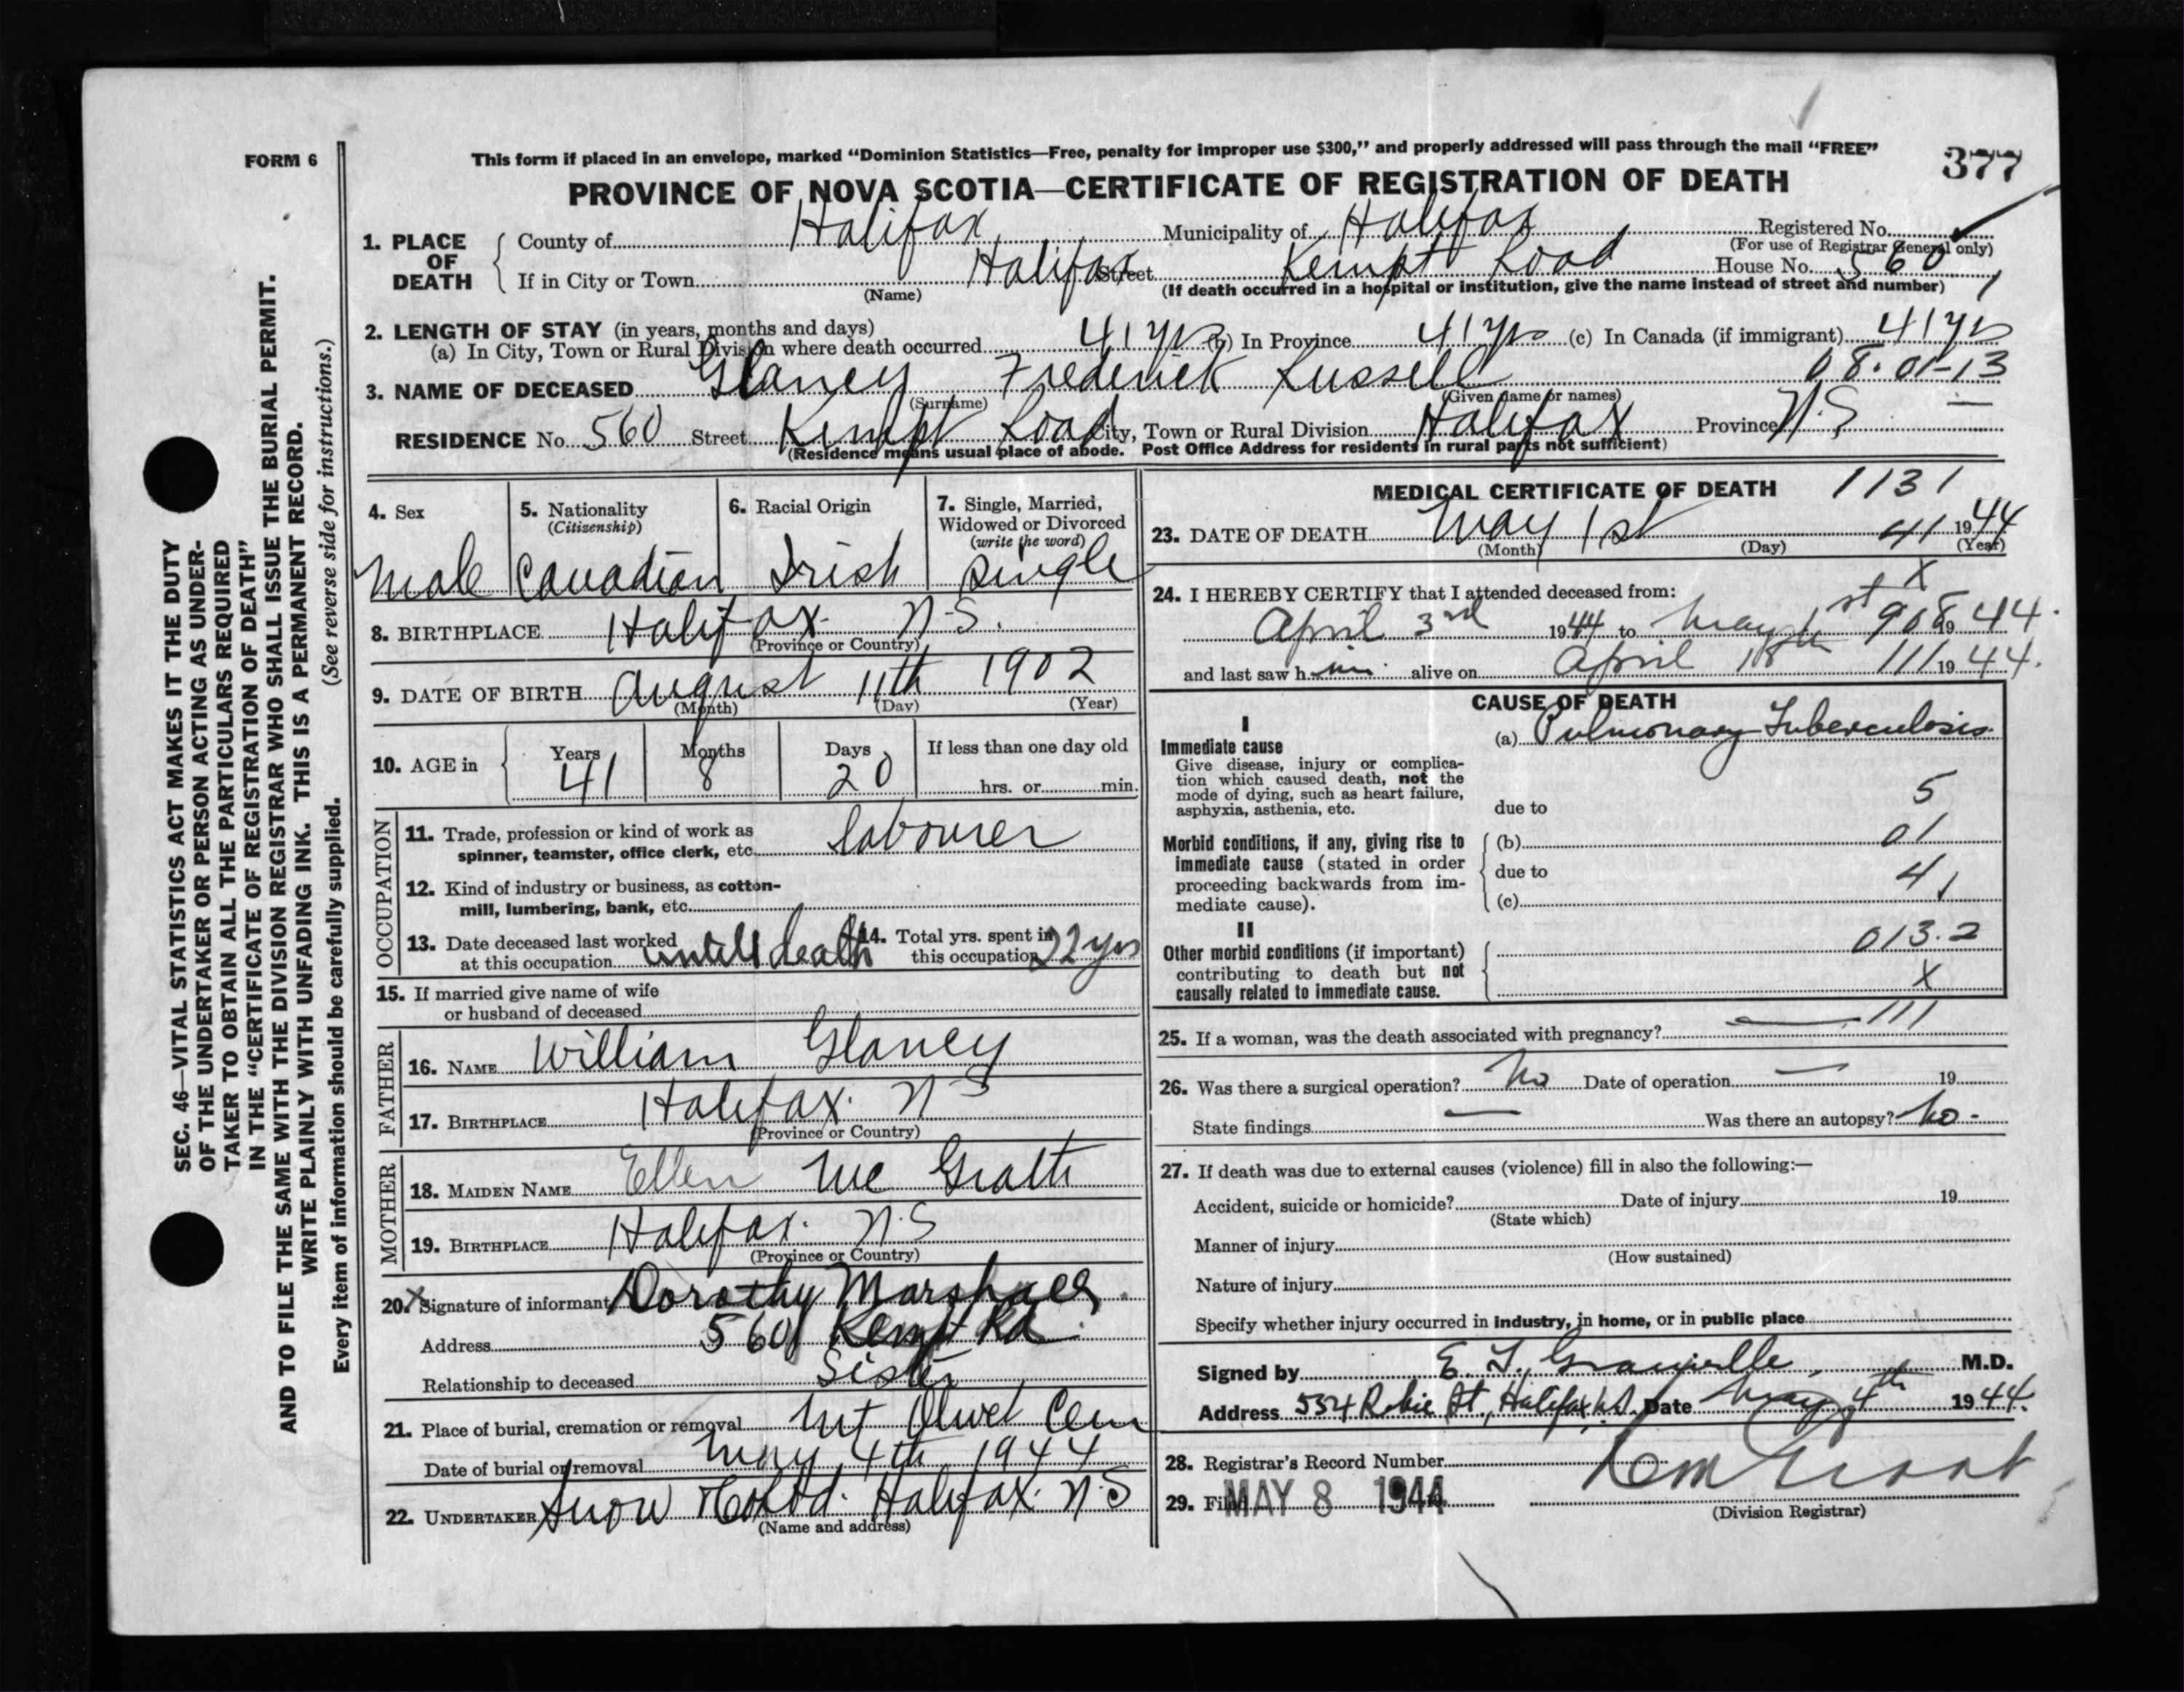 FORM 6
This form if placed in an envelope, marked "Dominion Statistics—Free, penalty for improper use $300," and properly addressed will pass through the mail "FREE"
377
PROVINCE OF NOVA SCOTIA—CERTIFICATE OF REGISTRATION OF DEATH
1. PLACE OF DEATH
County of Halifax Municipality of Halifax Registered No.
(For use of Registrar General only)
If in City or Town Halifax Street Kempt Road House No. 560
(Name) (If death occurred in a hospital or institution, give the name instead of street and number)
2. LENGTH OF STAY (in years, months and days)
(a) In City, Town or Rural Division where death occurred 41 yrs (b) In Province 41 yrs (c) In Canada (if immigrant) 41 yrs
08-01-13
3. NAME OF DECEASED Glancy Frederick Russell
(Surname) (Given name or names)
RESIDENCE No. 560 Street Kempt Road City, Town or Rural Division Halifax Province N.S.
(Residence means usual place of abode. Post Office Address for residents in rural parts not sufficient)
4. Sex 5. Nationality (Citizenship) 6. Racial Origin 7. Single, Married, Widowed or Divorced (write the word)
Male Canadian Irish Single
8. BIRTHPLACE Halifax N.S.
(Province or Country)
9. DATE OF BIRTH August 11th 1902
(Month) (Day) (Year)
10. AGE in Years Months Days If less than one day old
41 8 20 hrs. or min.
OCCUPATION
11. Trade, profession or kind of work as spinner, teamster, office clerk, etc. labourer
12. Kind of industry or business, as cotton-mill, lumbering, bank, etc.
13. Date deceased last worked at this occupation untill death 14. Total yrs. spent in this occupation 22 yrs
15. If married give name of wife or husband of deceased
FATHER
16. NAME William Glancy
17. BIRTHPLACE Halifax. N S
(Province or Country)
MOTHER
18. MAIDEN NAME Ellen Mc Grath
19. BIRTHPLACE Halifax. N.S
(Province or Country)
20. X Signature of informant Dorothy Marshall
Address 560 Kempt Rd.
Relationship to deceased Sister
21. Place of burial, cremation or removal Mt Olivet Cem
Date of burial or removal May 4th 1944
22. UNDERTAKER Snow & Co Ltd. Halifax. N.S
(Name and address)
MEDICAL CERTIFICATE OF DEATH 1131
23. DATE OF DEATH May 1st 41 1944
(Month) (Day) (Year)
24. I HEREBY CERTIFY that I attended deceased from: X
April 3rd 1944 to May 1st 908 1944.
and last saw him alive on April 18th 111 1944.
CAUSE OF DEATH
I
Immediate cause
Give disease, injury or complication which caused death, not the mode of dying, such as heart failure, asphyxia, asthenia, etc.
(a) Pulmonary Tuberculosis
5
due to
Morbid conditions, if any, giving rise to immediate cause (stated in order proceeding backwards from immediate cause).
(b) 01
due to 4
(c)
II
Other morbid conditions (if important) contributing to death but not causally related to immediate cause.
013.2
X
25. If a woman, was the death associated with pregnancy? — 111
26. Was there a surgical operation? No Date of operation — 19
State findings — Was there an autopsy? No -
27. If death was due to external causes (violence) fill in also the following:—
Accident, suicide or homicide? Date of injury 19
(State which)
Manner of injury
(How sustained)
Nature of injury
Specify whether injury occurred in industry, in home, or in public place
Signed by E. T. Granville M.D.
Address 554 Robie St., Halifax N.S. Date May 4th 1944.
28. Registrar's Record Number
29. Filed MAY 8 1944
(Division Registrar)
SEC. 46—VITAL STATISTICS ACT MAKES IT THE DUTY
OF THE UNDERTAKER OR PERSON ACTING AS UNDER-
TAKER TO OBTAIN ALL THE PARTICULARS REQUIRED
IN THE "CERTIFICATE OF REGISTRATION OF DEATH"
AND TO FILE THE SAME WITH THE DIVISION REGISTRAR WHO SHALL ISSUE THE BURIAL PERMIT.
WRITE PLAINLY WITH UNFADING INK. THIS IS A PERMANENT RECORD.
Every item of information should be carefully supplied. (See reverse side for instructions.)